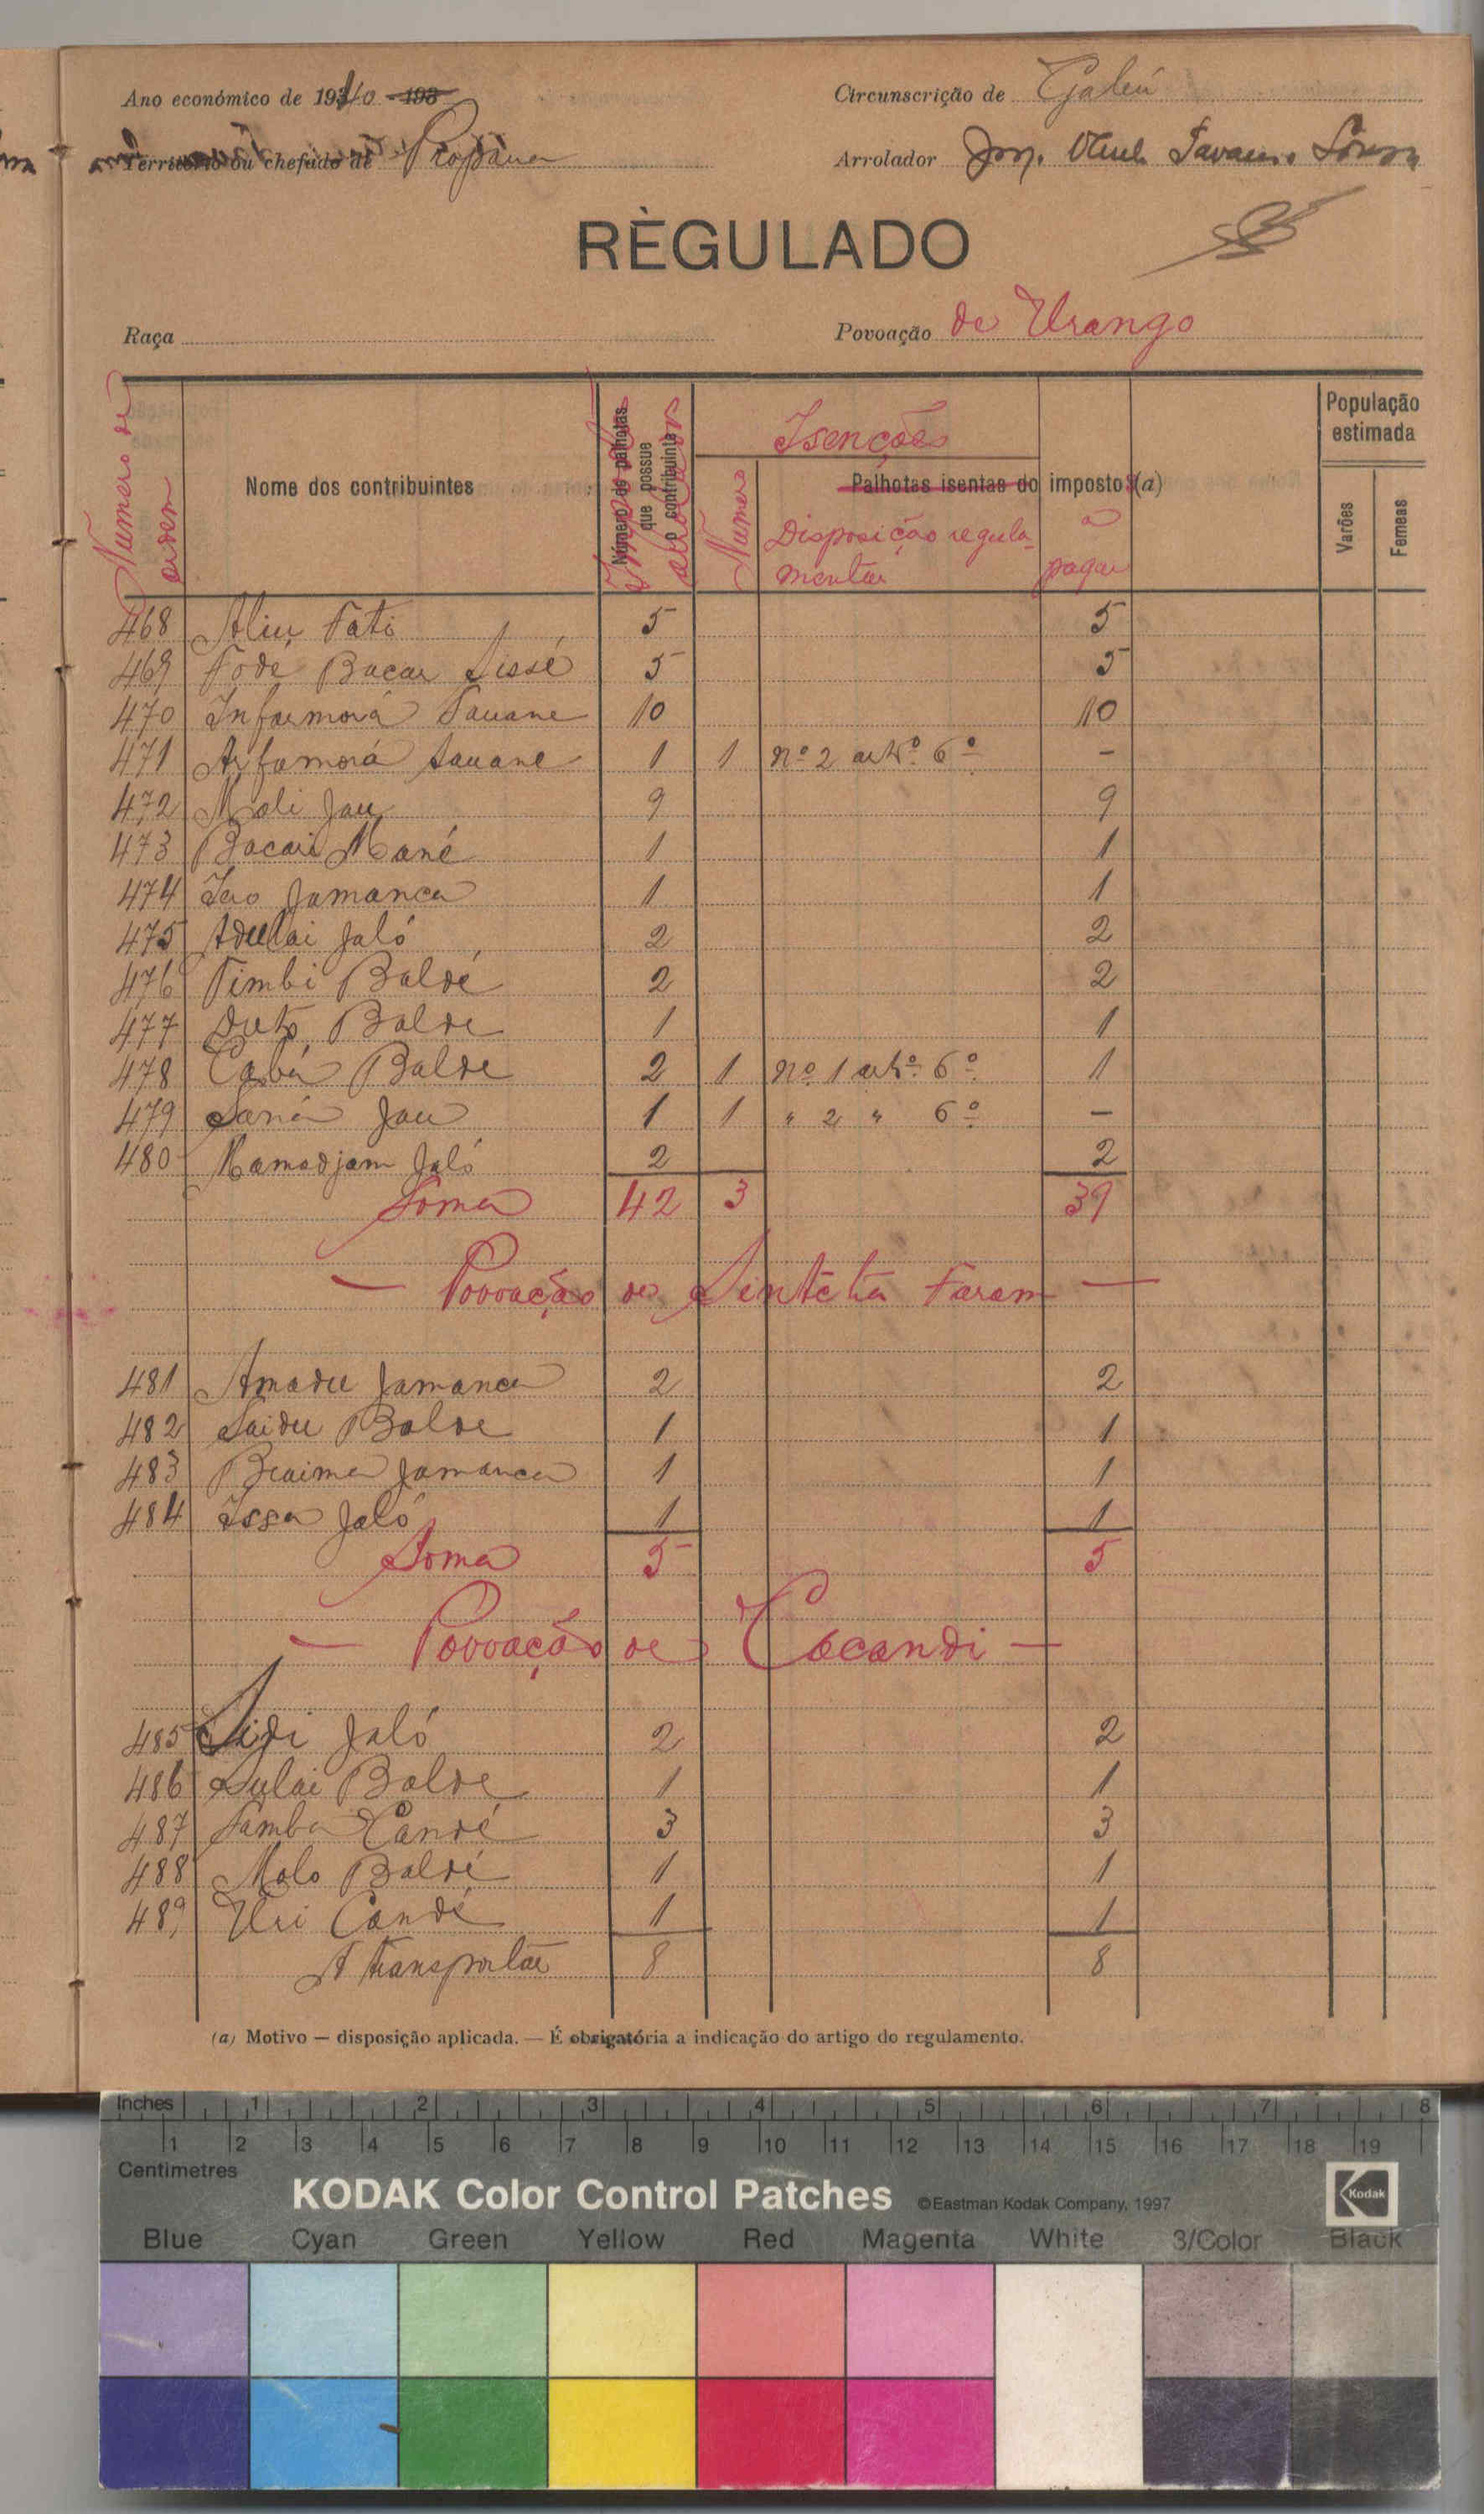 Ano económico de 1940 - 193
Circunscrição de Gabú
Território ou chefado de Propana
Arrolador
RÈGULADO
Raça
Povoação de Urango
Numero de ordem
Nome dos contribuintes
Número de palhotas que possue o contribuinte
Isenções
Numero
Palhotas isentas do imposto (a)
Disposição regula-
mentar
a
pagar
População
estimada
Varões
Femeas
468 Aliu Fati 5 5
469 Fodé Bacar Sissé 5 5
470 Infarmorá Sauane 10 10
471 Arfamorá Sauane 1 1 nº 2 artº 6º -
472 Moli Jau 9 9
473 Bacari Mané 1 1
474 Iero Jamanca 1 1
475 Adulai Jaló 2 2
476 Timbi Baldé 2 2
477 Duto Balde 1 1
478 Cabá Balde 2 1 nº 1 artº 6º 1
479 Saná Jau 1 1 " 2 " 6º -
480 Mamadjam Jaló 2 2
Soma 42 3 39
— Povoação de Sintchã Faram —
481 Amadu Jamanca 2 2
482 Saidu Balde 1 1
483 Braima Jamanca 1 1
484 Issa Jaló 1 1
Soma 5 5
— Povoação de Cocandi —
485 Sidi Jaló 2 2
486 Sulai Balde 1 1
487 Samba Candé 3 3
488 Molo Baldé 1 1
489 Uri Candé 1 1
A transportar 8 8
(a) Motivo — disposição aplicada. — É obrigatória a indicação do artigo do regulamento.
Inches 1 2 3 4 5 6 7 8
1 2 3 4 5 6 7 8 9 10 11 12 13 14 15 16 17 18 19
Centimetres
KODAK Color Control Patches ©Eastman Kodak Company, 1997 Kodak
Blue Cyan Green Yellow Red Magenta White 3/Color Black